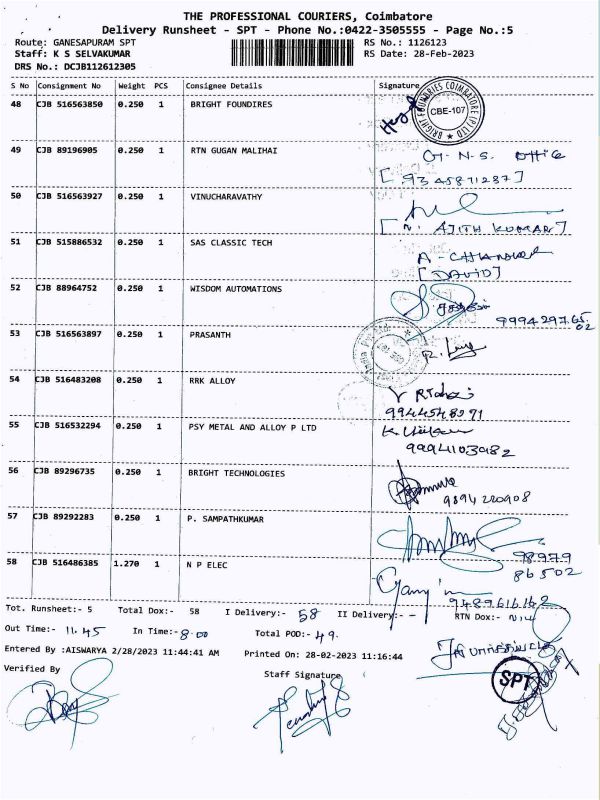 THE PROFESSIONAL COURIERS, Coimbatore
Delivery Runsheet - SPT - Phone No.:0422-3505555 - Page No.:5
Route: GANESAPURAM SPT RS No.: 1126123
Staff: K S SELVAKUMAR RS Date: 28-Feb-2023
DRS No.: DCJB112612305
S No Consignment No Weight PCS Consignee Details Signature
48 CJB 516563850 0.250 1 BRIGHT FOUNDIRES
BRIGHT FOUNDRIES COIMBATORE (P) LTD
CBE-107
49 CJB 89196905 0.250 1 RTN GUGAN MALIHAI
G.N.S. office
[9345871287]
50 CJB 516563927 0.250 1 VINUCHARAVATHY
[N. AJITH KUMAR]
51 CJB 515886532 0.250 1 SAS CLASSIC TECH
[DAVID]
52 CJB 88964752 0.250 1 WISDOM AUTOMATIONS
999429765
02
53 CJB 516563897 0.250 1 PRASANTH
54 CJB 516483208 0.250 1 RRK ALLOY
9944548971
55 CJB 516532294 0.250 1 PSY METAL AND ALLOY P LTD
9994103982
56 CJB 89296735 0.250 1 BRIGHT TECHNOLOGIES
9894220908
57 CJB 89292283 0.250 1 P. SAMPATHKUMAR
98979
86502
58 CJB 516486385 1.270 1 N P ELEC
9489616162
Tot. Runsheet:- 5 Total Dox:- 58 I Delivery:- 58 II Delivery:- - RTN Dox:- Nil
Out Time:- 11.45 In Time:- 8.00 Total POD:- 49.
Entered By :AISWARYA 2/28/2023 11:44:41 AM Printed On: 28-02-2023 11:16:44
Verified By Staff Signature
SPT